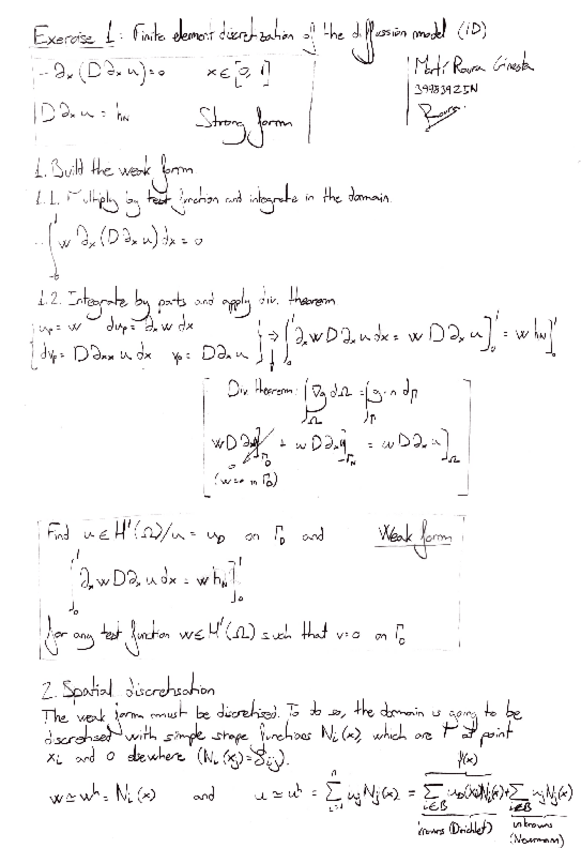 Exercise 1: Finite element discretization of the diffussion model (1D)
- ∂ₓ(D∂ₓu)=0 x∈[0,1]
D∂ₓu = h_N Strong form
Martí Roura Ginesta
1. Build the weak form
1.1. Multiply by test function and integrate in the domain.
-∫₀¹ w ∂ₓ(D∂ₓu)dx = 0
1.2. Integrate by parts and apply div. theorem
u_p = w du_p = ∂ₓw dx
dv_p = D∂ₓₓu dx v_p = D∂ₓu
⇒ ∫₀¹ ∂ₓw D∂ₓu dx = w D∂ₓu]₀¹ = w h_N]₀¹
Div theorem: ∫_Ω ∇g dΩ = ∫_Γ g·n dΓ
wD∂ₓu]_Γ_D + wD∂ₓu]_Γ_N = wD∂ₓu]_Ω
0
(w=0 in Γ_D)
Find u∈H¹(Ω)/u = u_D on Γ_D and Weak form
∫₀¹ ∂ₓw D∂ₓu dx = w h_N]₀¹
for any test function w∈H¹(Ω) such that v=0 on Γ_D
2. Spatial discretisation
The weak form must be discretised. To do so, the domain is going to be
discretised with simple shape functions Nᵢ(x), which are 1 at point
xᵢ and 0 elsewhere (Nᵢ(xⱼ)=δᵢⱼ).
w ≃ wʰ = Nᵢ(x) and u ≃ uʰ = Σ uⱼNⱼ(x) = Σ u_D(xᵢ)Nᵢ(x) + Σ uⱼNⱼ(x)
knowns (Dirichlet) unknowns
(Neumann)